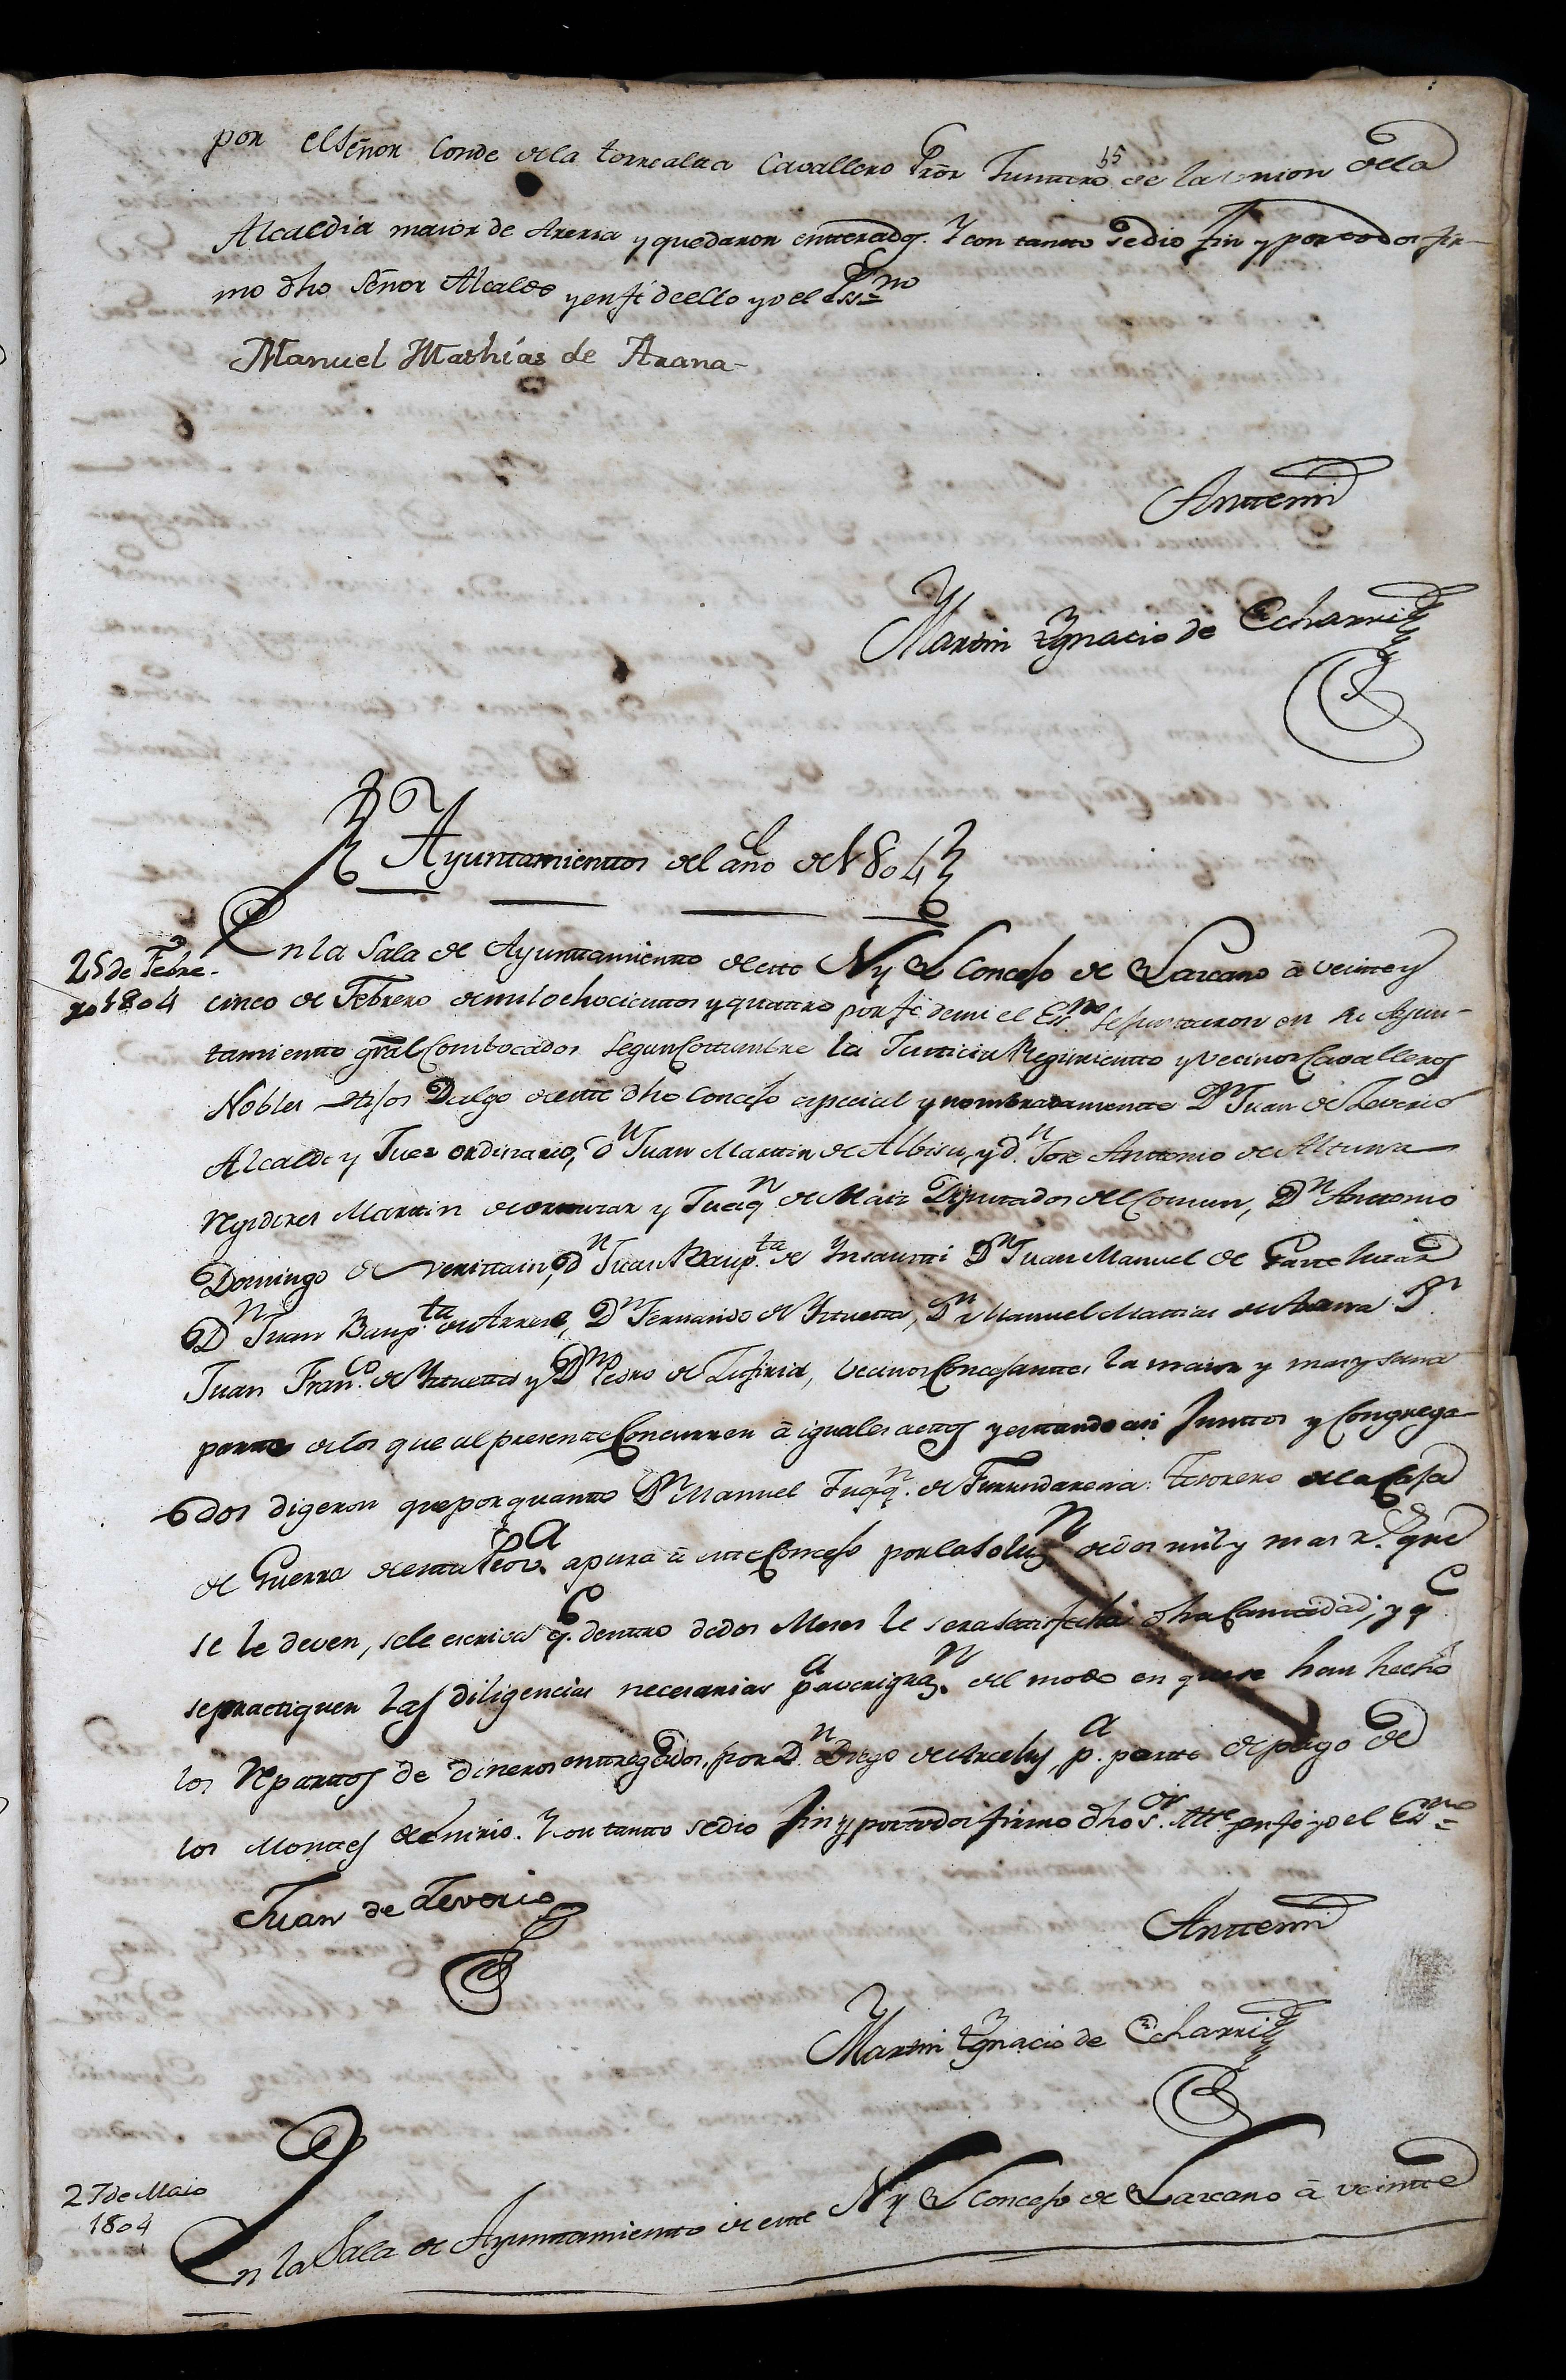 por el Señor Conde de la torrealta Cavallero Prõr Junttero de la union de la
55
Alcaldia maior de Areria y quedaron entterados. Y con tantto se dio fin y por todos fir-
mo dho Señor Alcalde y en fé de ello yo el Essno=
Manuel Mathías de Arana-
Anttemi
Martin Ygnacio de Echarri
Ayunttamienttos del año de 1804
25 de Febre-
ro 1804
En la Sala de Ayunttamientto de estte N y L Concejo de Lazcano à veintte y
cinco de Febrero de mil ochocienttos y quattro por fé de mi el Essno se junttaron en su Ayun-
tamientto grãl Combocados Segun Costtumbre la Justticia Regimientto y vecinos Cavalleros
Nobles Hijos Dalgo de estte dho Concejo especial y nombradamentte Dn Juan de Teveriò
Alcalde y Juez ordinario, Dn Juan Marttin de Albisu, y dn Jose Anttonio de Alttuna
Regidores Marttin de y Juaqn de Maiz Diputtados del Comun, Dn Anttonio
Domingo de Dn Juan Baupta de Ynsaustti Dn Juan Manuel de
Dn Juan Baupta de Arrese, Dn Fernando de Ytuetta, Dn Manuel Mattias de Arana Dn
Juan Franco de Ytuetta y Dn Pedro de vecinos Concejanttes la maior y mas sana
partte de los que al presentte Concurren à iguales acttos y esttando asi Junttos y Congrega-
dos digeron que por quantto Dn Manuel Juaqn. de Furundarena tesorero de la Casa
de Guerra de estta Prova. apura à estte Concejo por la soluzn de dos mil y mas rs. que
se le deven, se le escriva q. dentro de dos Meses le sera sattisfecha dha Canttidad, y qe
se practtiquen las diligencias necesarias pa averiguazn. del modo en que se han hecho
los Reparttos de dineros enttregados, por Dn. Diego de Arcelus, pa. partte de pago de
los Monttes de Enirio. Y con tantto se dio fin y por todos firmo dho Sor. Alle y en fe yo el Essno=
Juan de Teverio
Anttemi
Martin Ygnacio de Echarri
27 de Maio
1804
En la Sala de Ayunttamientto de estte N y L Concejo de Lazcano à veintte